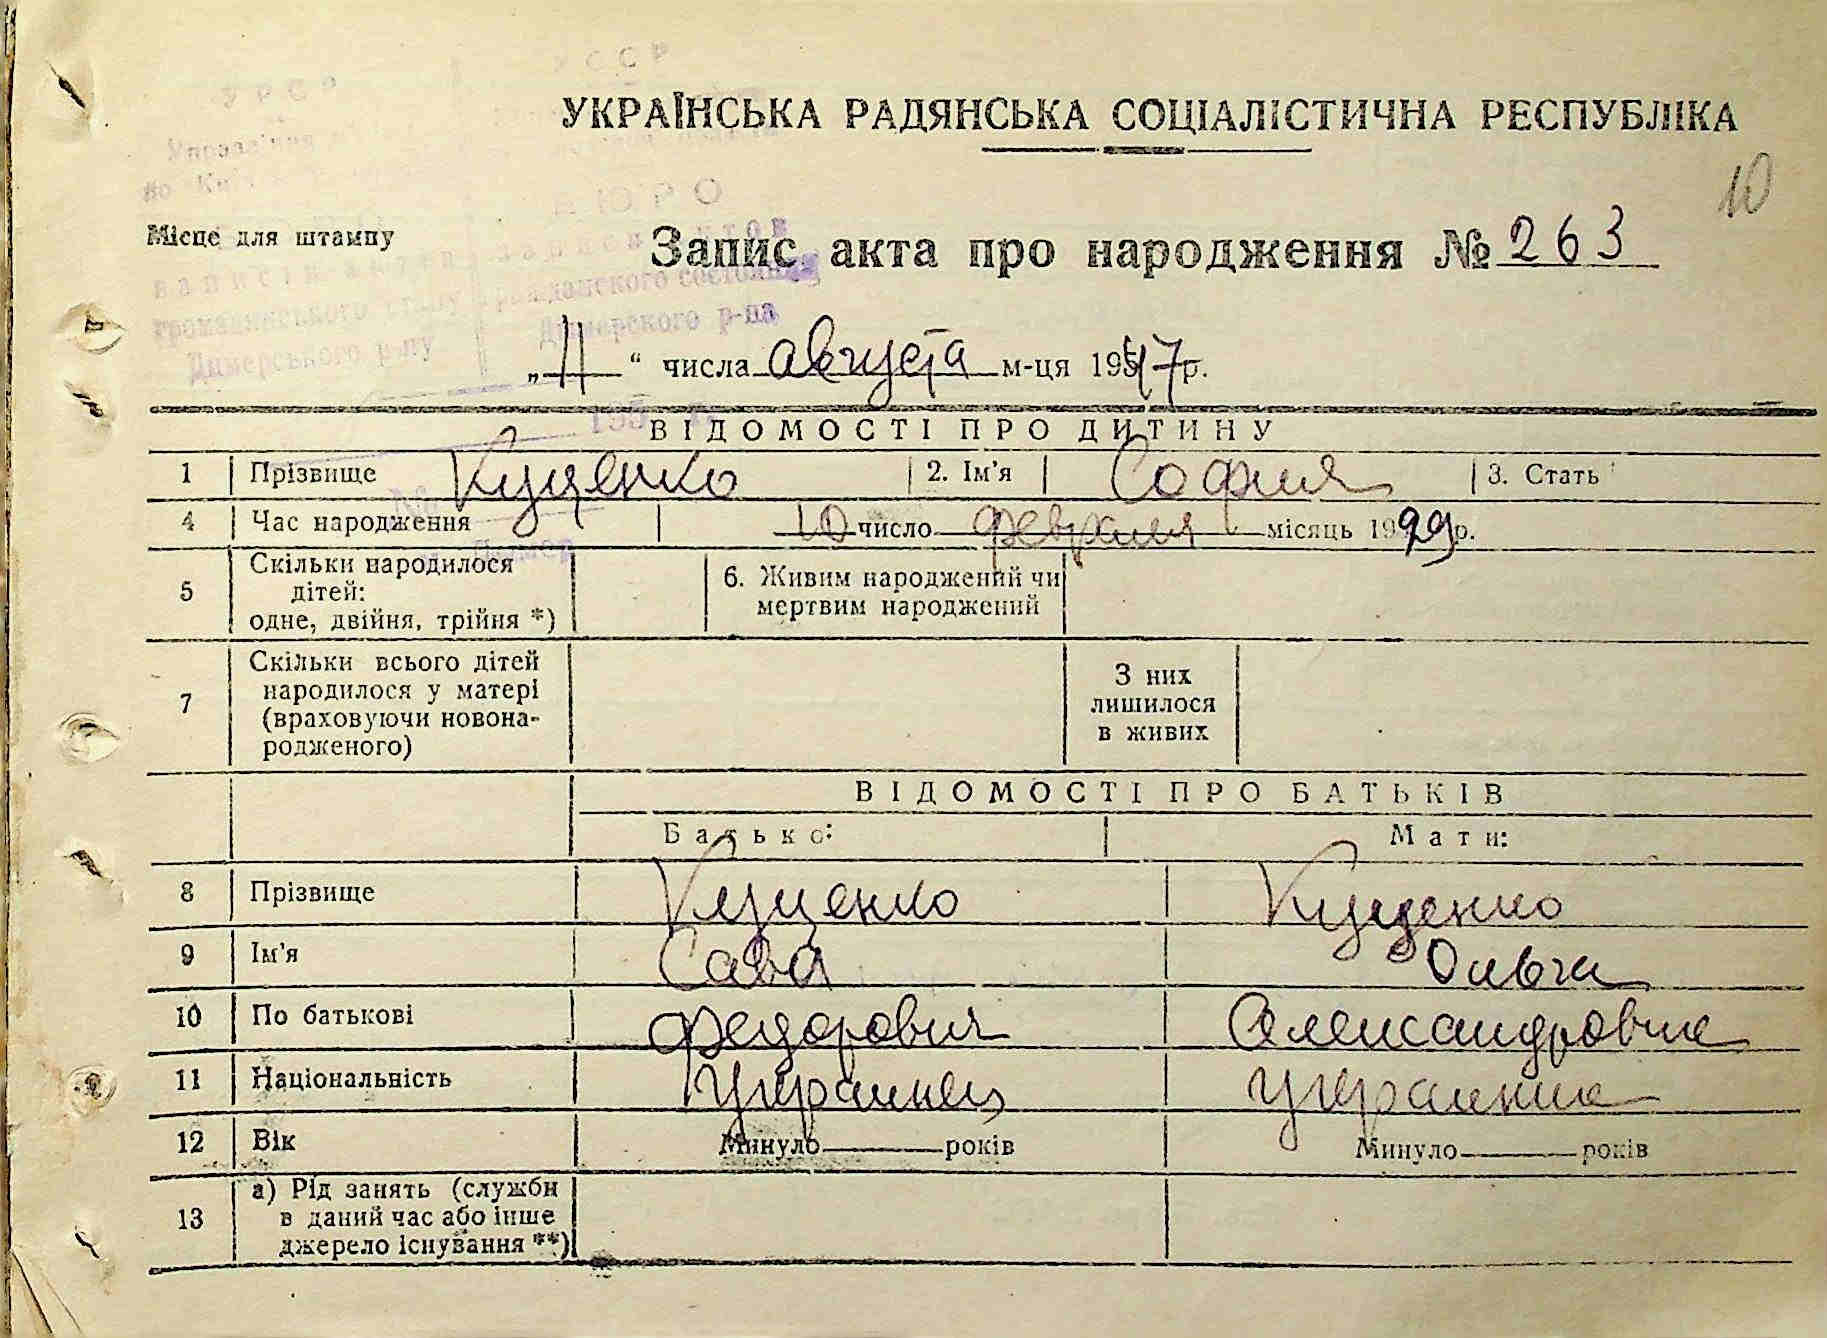 УРСР УССР
УКРАЇНСЬКА РАДЯНСЬКА СОЦІАЛІСТИЧНА РЕСПУБЛІКА
10
БЮРО
Місце для штампу
Запис акта про народження № 263
записів актів записи актов
громадянського стану гражданского состояния
Димерського р-ну Дымерского р-на
„11“ числа августа м-ця 1947р.
195
ВІДОМОСТІ ПРО ДИТИНУ
1 Прізвище Куценко 2. Ім'я София 3. Стать
№
4 Час народження 10 число февраля місяць 1929р.
5 Скільки народилося дітей: одне, двійня, трійня *) 6. Живим народжений чи мертвим народжений
7 Скільки всього дітей народилося у матері (враховуючи новонародженого) З них лишилося в живих
ВІДОМОСТІ ПРО БАТЬКІВ
Батько: Мати:
8 Прізвище Куценко Куценко
9 Ім'я Сава Ольга
10 По батькові Федорович Александровна
11 Національність Украинец Украинка
12 Вік Минуло років Минуло років
13 а) Рід занять (служби в даний час або інше джерело існування **)